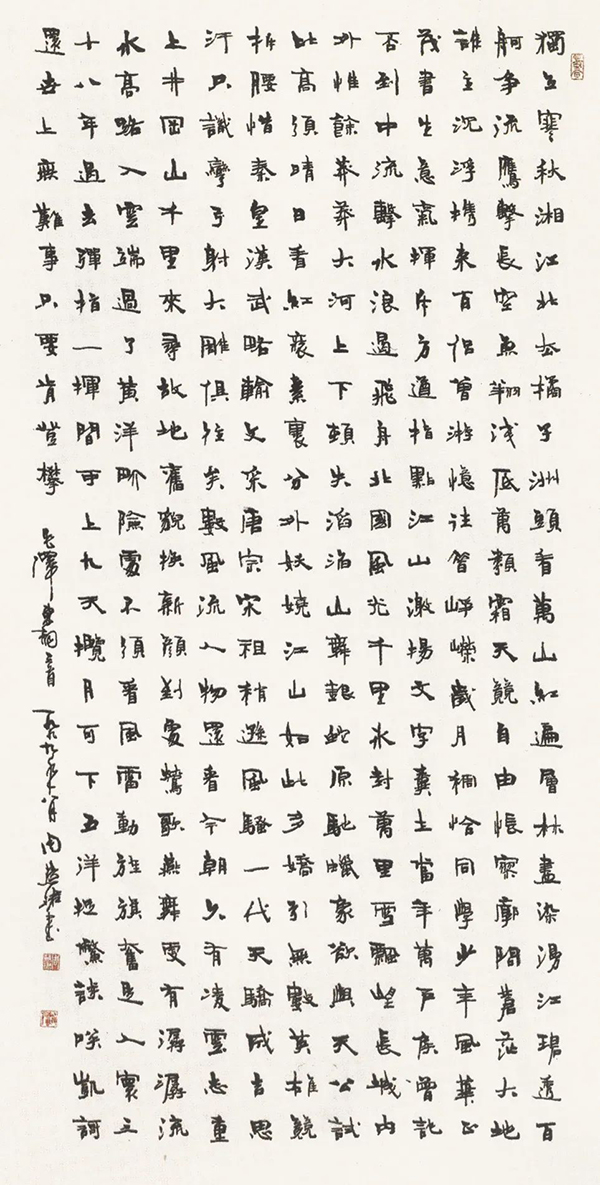 獨立寒秋湘江北去橘子洲頭看萬山紅遍層林盡染漫江碧透百
舸争流鷹擊長空魚翔浅底萬類霜天競自由悵寥廓問蒼茫大地
誰主沉浮携來百侶曾遊憶往昔崢嶸歲月稠恰同學少年風華正
茂書生意氣揮斥方遒指點江山激揚文字糞土當年萬户侯曾記
否到中流擊水浪遏飛舟北國風光千里冰封萬里雪飄望長城内
外惟餘莽莽大河上下頓失滔滔山舞銀蛇原馳蠟象欲與天公試
比高須晴日看紅裝素裹分外妖嬈江山如此多嬌引無數英雄競
折腰惜秦皇漢武略輸文采唐宗宋祖稍遜風騷一代天驕成吉思
汗只識彎弓射大雕俱往矣數風流人物還看今朝久有凌雲志重
上井岡山千里來尋故地舊貌換新顏到處鶯歌燕舞更有潺潺流
水高路入雲端過了黃洋界險處不須看風雷動旌旗奮是人寰三
十八年過去彈指一揮間可上九天攬月可下五洋捉鱉談笑凱歌
還世上無難事只要肯登攀 毛澤東詞三首